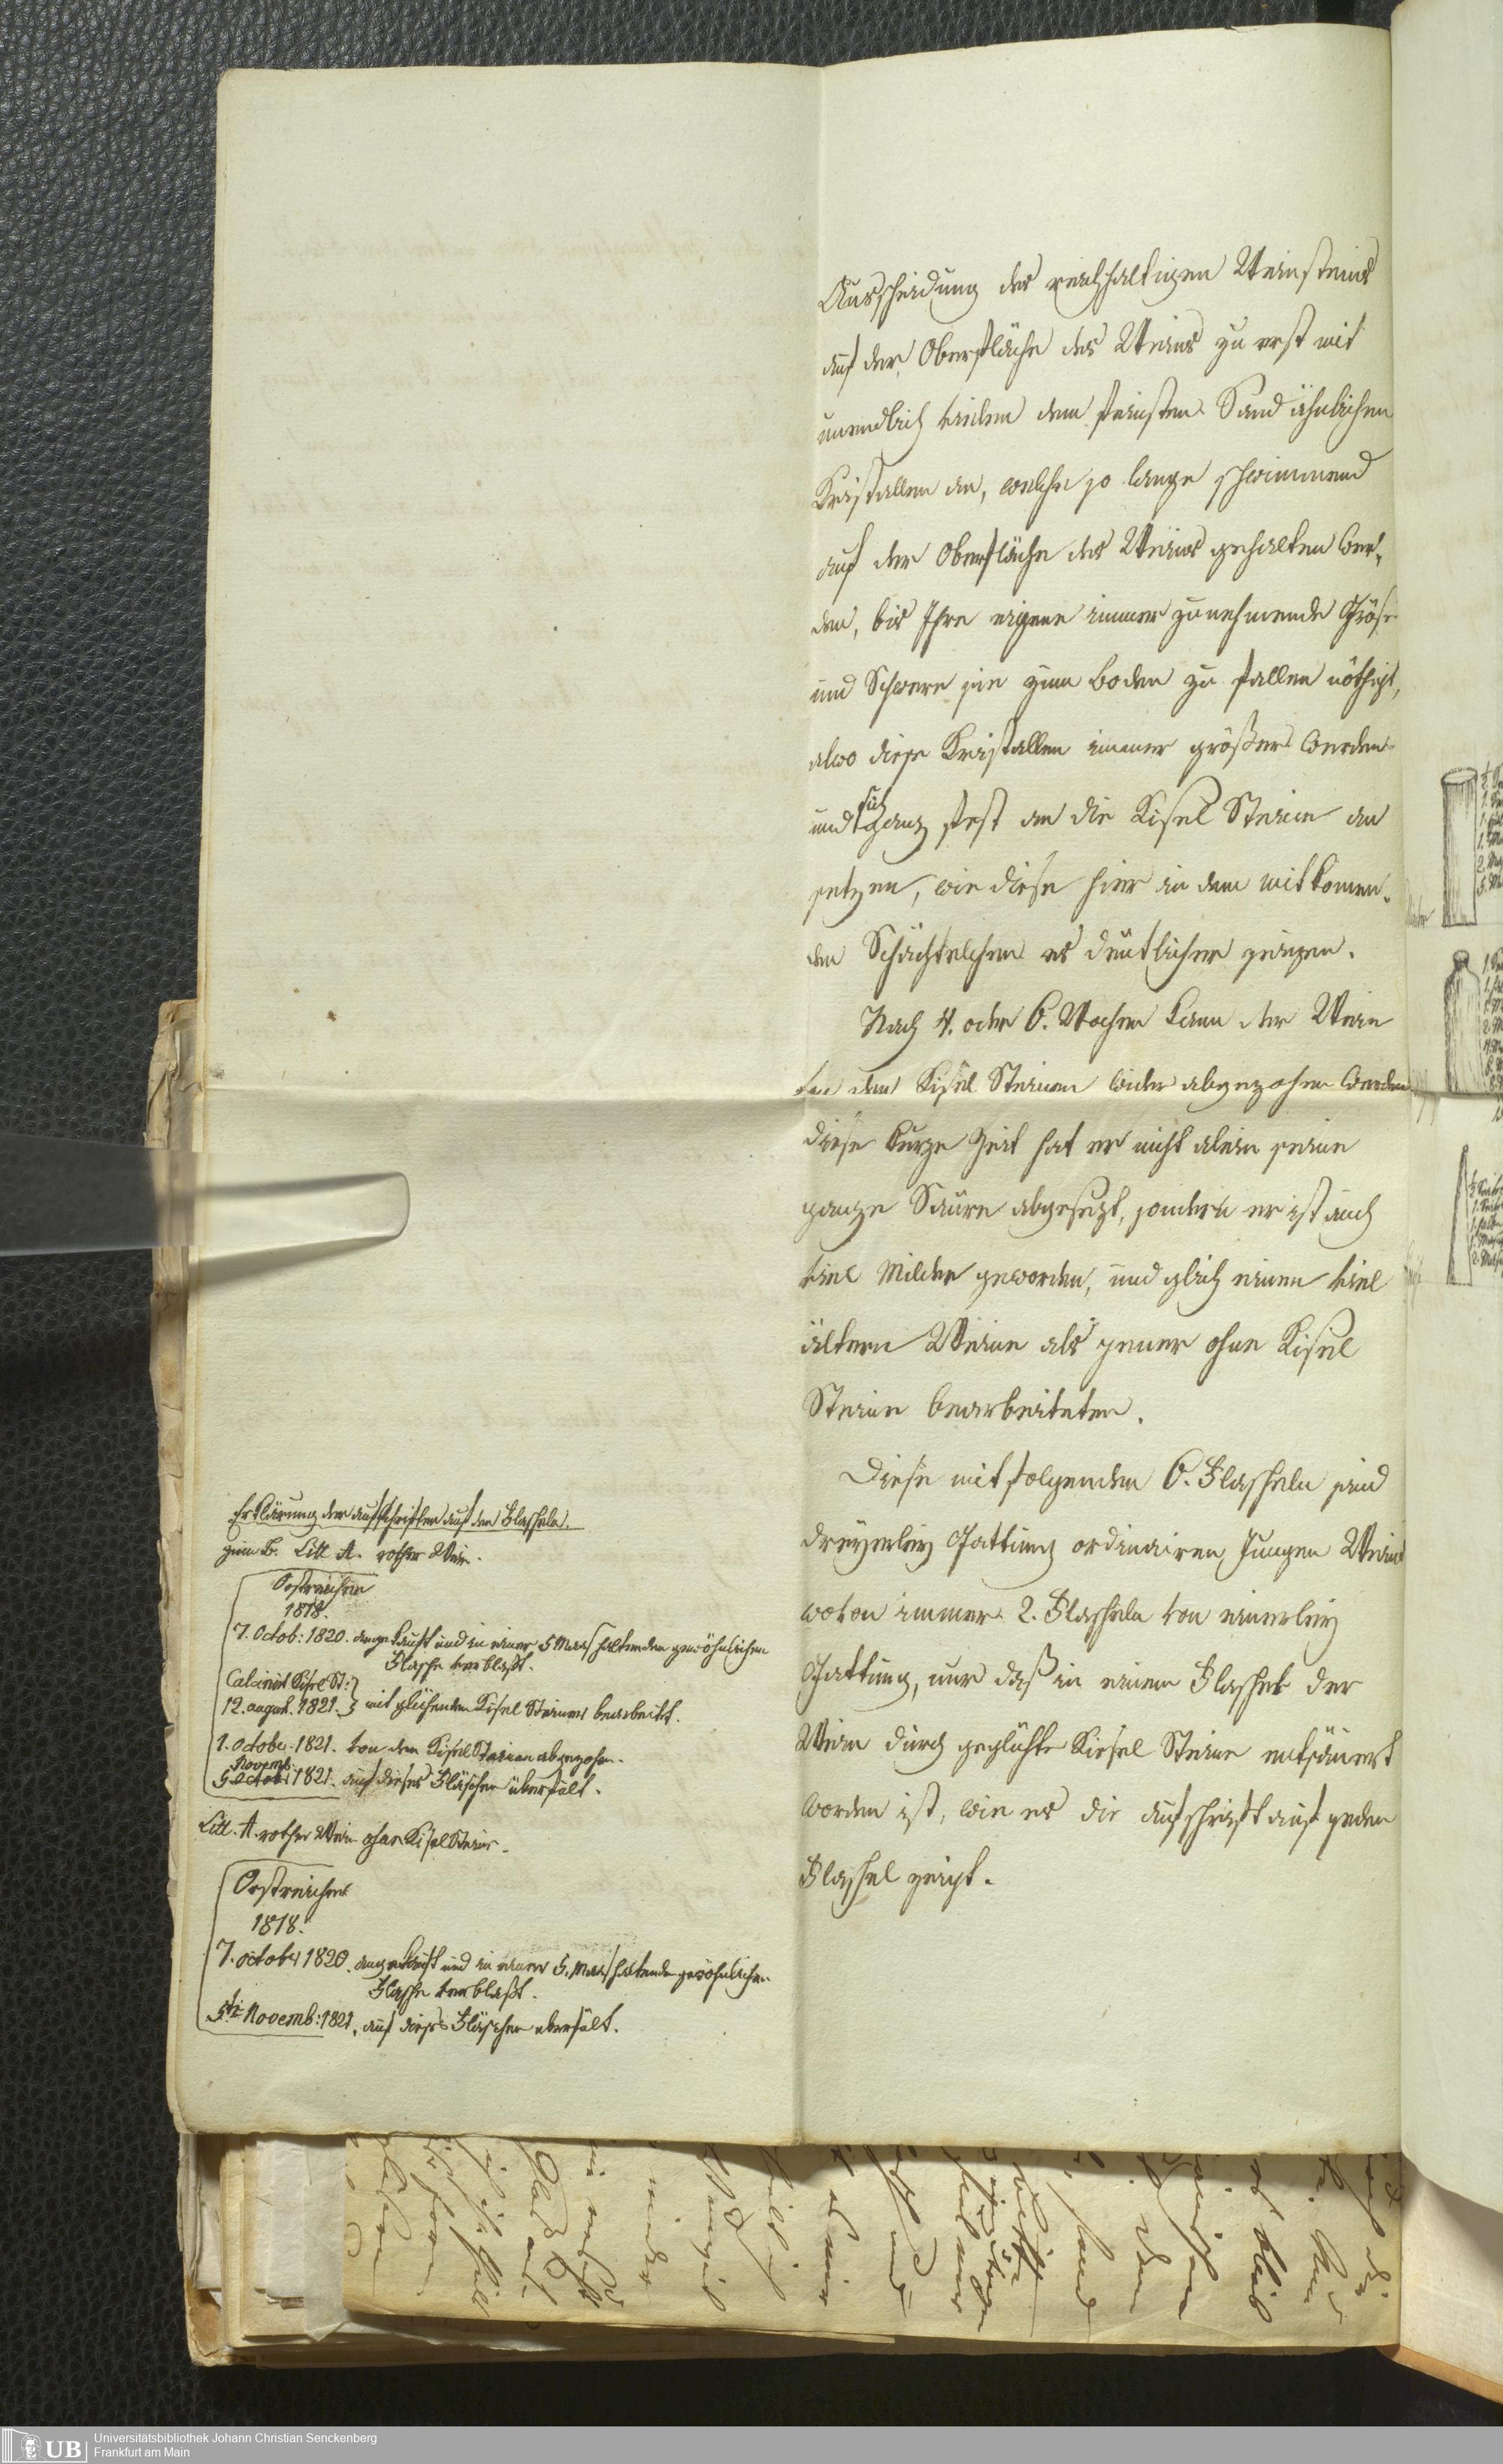 Ausscheidung des reichhaltigen Weinsteins
auf der Oberfläche des Weins zu erst mit
unendlich vielen dem feinsten Sand ähnlichen
Kristallen an, welche so lange schwimmend
auf der Oberfläche des Weins gehalten wer,
den, bis Ihre eigene immer zunehmende Gröse
und Schwere sie zum Boden zu fallen nöthigt,
alwo diese Kristallen immer größer werden
und sich ganz fest an die Kisel Steine an
setzen, wie diese hier in dem mitkomen,
den Schächtelchen es deutlicher zeigen.
Nach 4. oder 6. Wochen kann der Wein
von den Kisel Steinen wider abgezohen werden
diese kurze Zeit hat er nicht alein seine
ganze Säure abgesezt, sondern er ist auch
viel Milder geworden, und glich einen viel
ältern Weine als jener ohne Kisel
Steine bearbeiteten.
Diese mitfolgenden 6. Flascheln sind
dreyerley Gattung ordinairen Jungen Weins
wovon immer 2. Flascheln von einerley
Gattung, nur daß in einem Flaschel der
Wein durch geglühte Kiesel Steine entsäuert
worden ist, wie es die Aufschrift auf jeden
Flaschel zeigt.
Erklärung der aufschriften auf den Flascheln.
zum B. Litt A. rother Wein.
Oestreicher
1818.
7. Octob: 1820. angekauft und in einer 5 Maas haltenden gewöhnlichen
Flasche verblaßt.
Calcinirt Kisel St:
12. august. 1821. mit glühenden Kisel Steinen bearbeitet.
1. october. 1821. von den Kisel Steinen abgezohen.
Novemb.
5 Octob: 1821. auf dieses Fläschen überfült.
Litt. A. rother Wein ohne Kisel Steine.
Oestreicher
1818.
7. october 1820. angekauft und in einer 5. Maas haltenden gewöhnlichen
Flasche verblaßt.
5te Novemb: 1821. auf dieses Fläschen überfült.
UB
Universitätsbibliothek Johann Christian Senckenberg
Frankfurt am Main